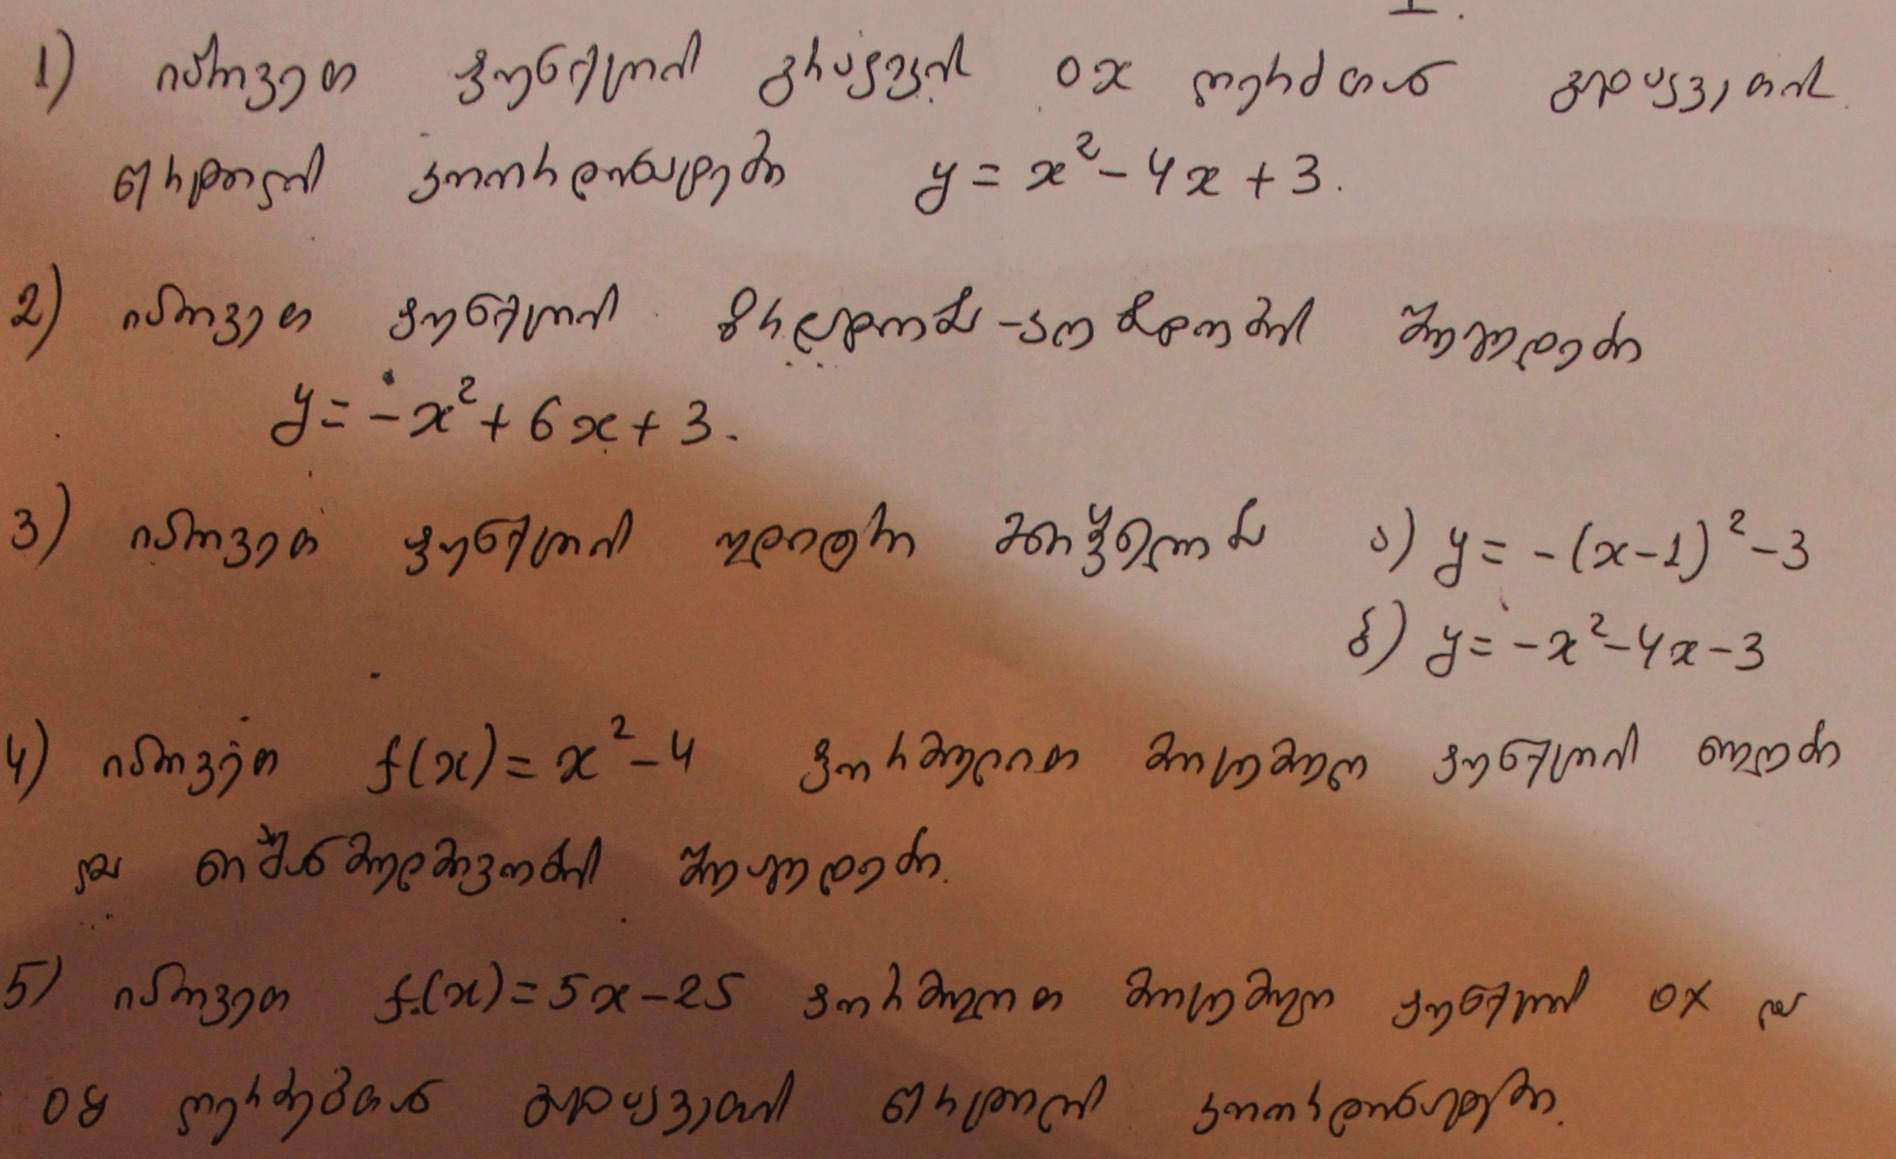 I.
1) იპოვეთ ფუნქციის გრაფიკის OX ღერძთან გადაკვეთის
წერტილის კოორდინატები y = x² - 4x + 3.
2) იპოვეთ ფუნქციის ზრდადობა-კლებადობის შუალედები
y = -x² + 6x + 3.
3) იპოვეთ ფუნქციის უდიდესი მნიშვნელობა ა) y = -(x-1)² - 3
ბ) y = -x² - 4x - 3
4) იპოვეთ f(x) = x² - 4 ფორმულით მოცემული ფუნქციის ნულები
და ნიშანმუდმივობის შუალედები.
5) იპოვეთ f(x) = 5x - 25 ფორმულით მოცემული ფუნქციის OX და
OY ღერძებთან გადაკვეთის წერტილის კოორდინატები.